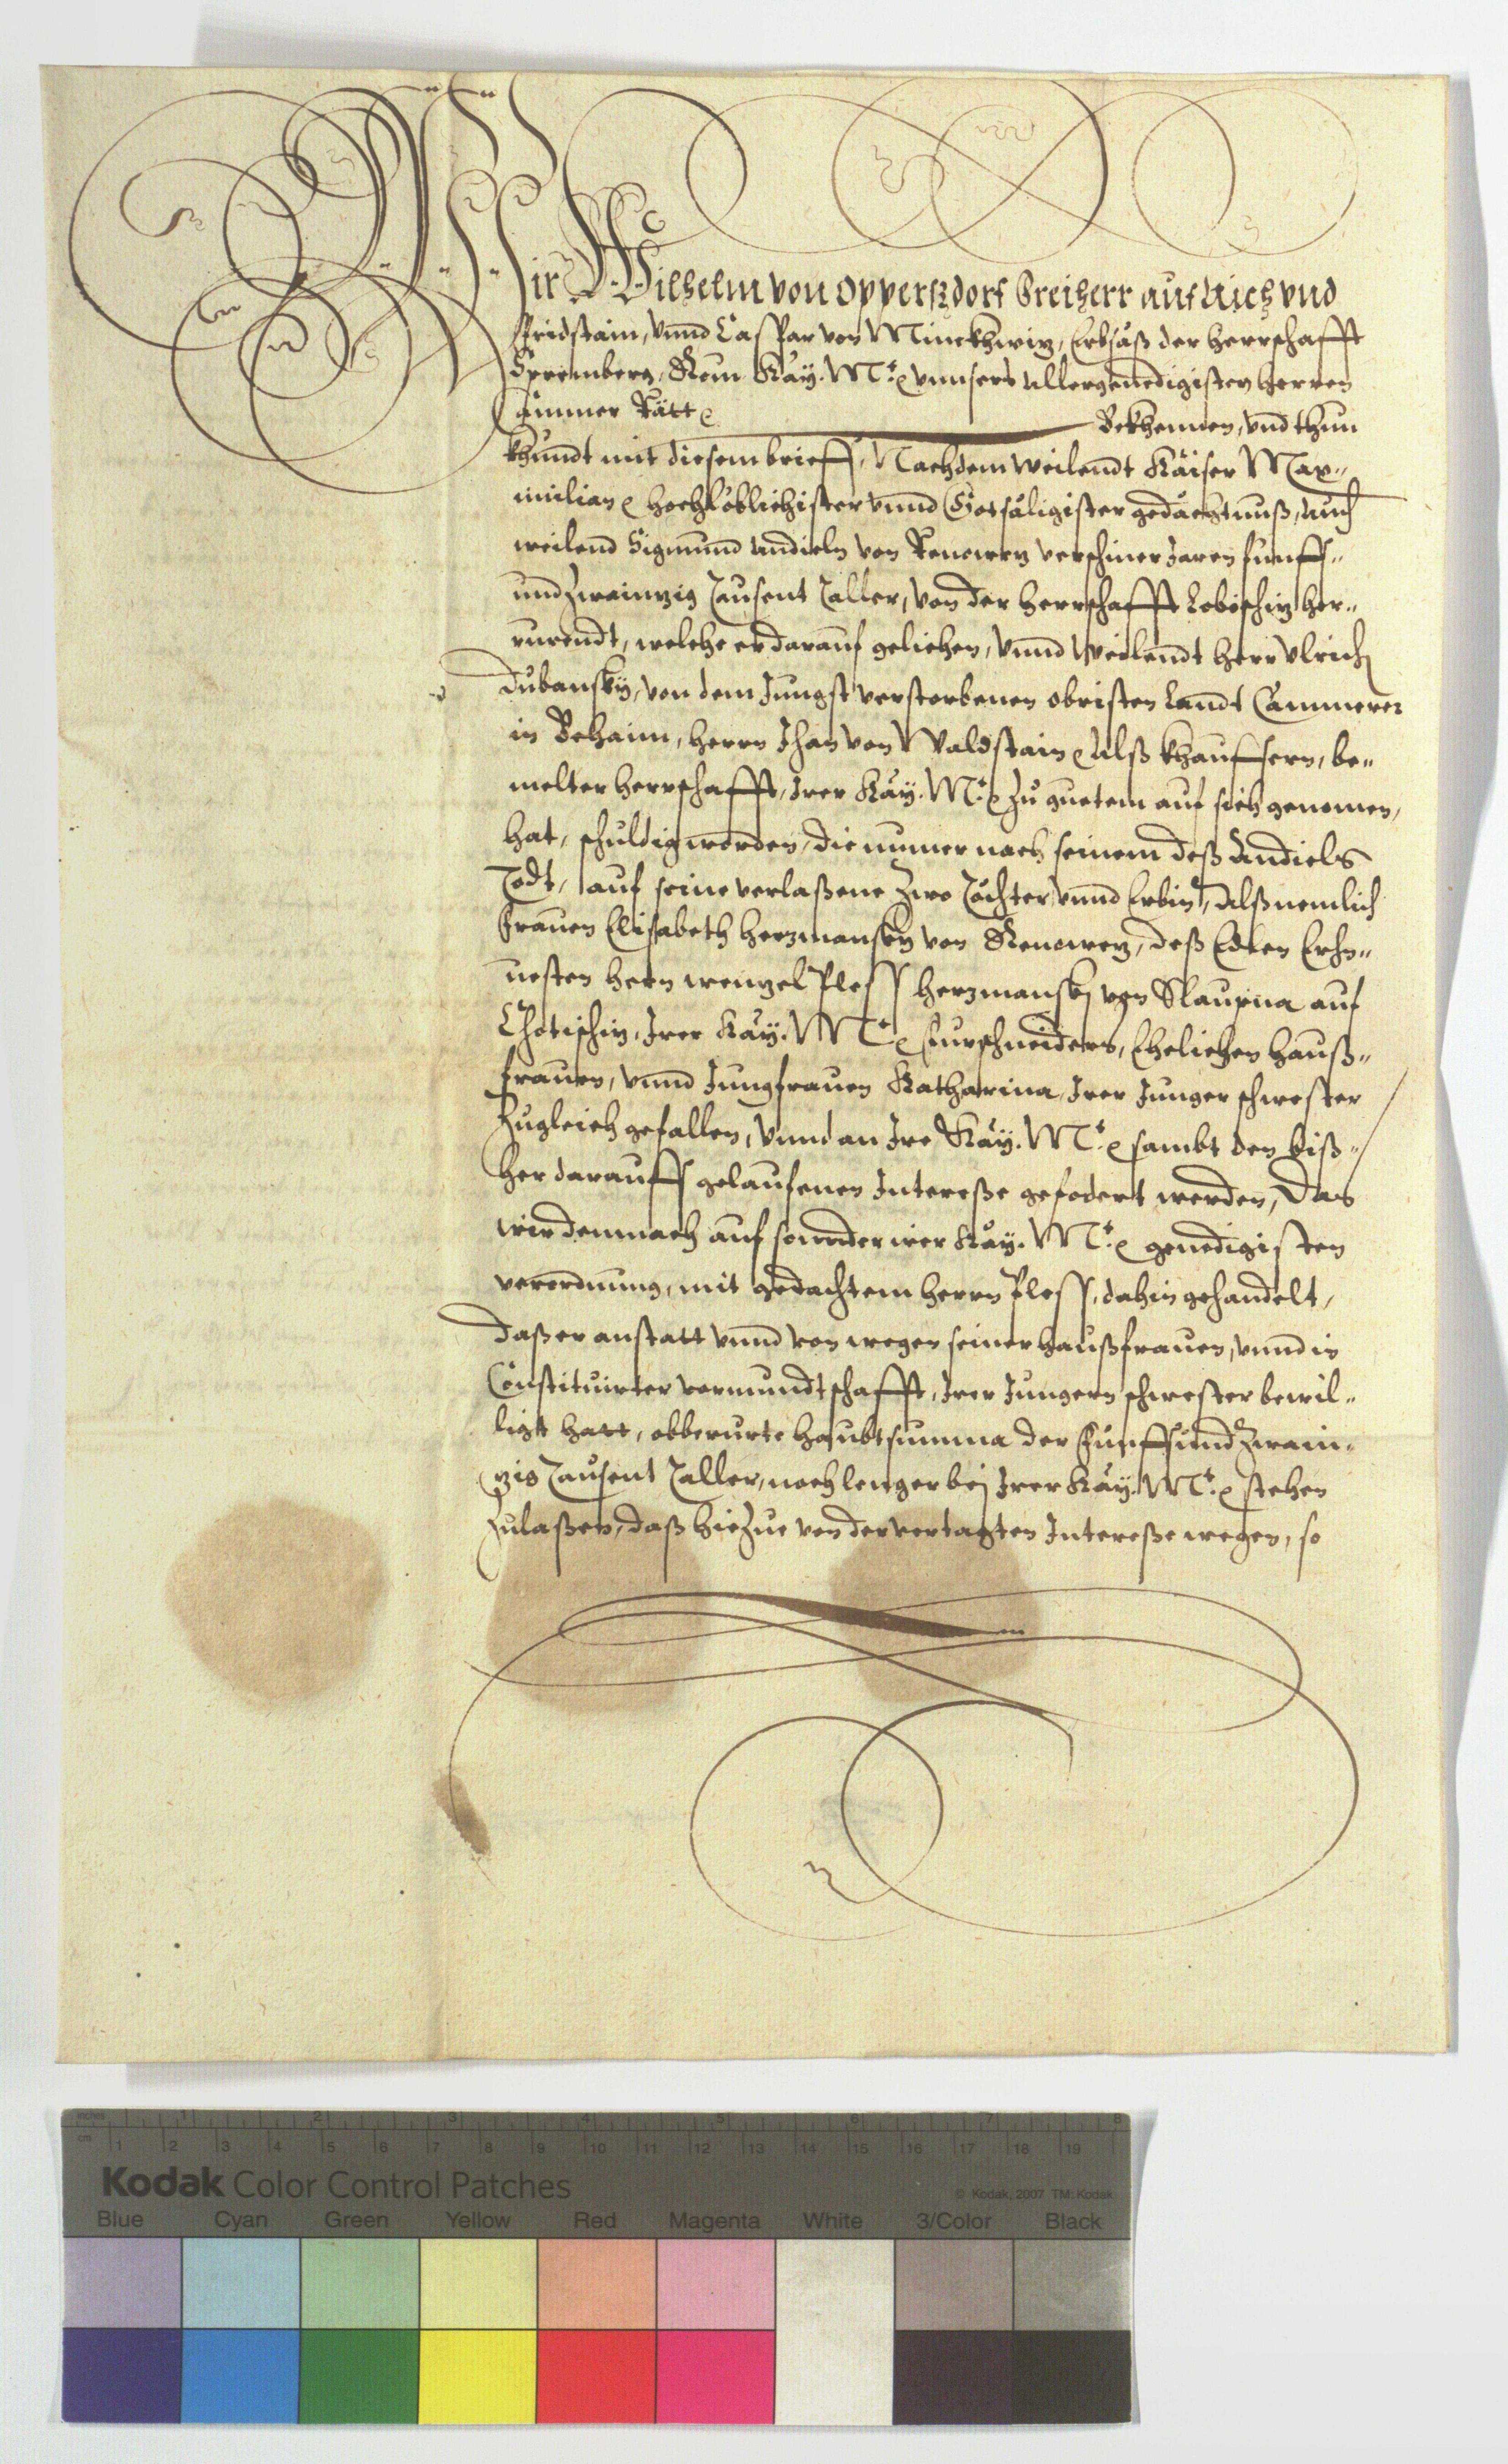 Wir Wilhelm von Oppersszdorf Freiherr auf Aich vnd
Fridstain, vnnd Caspar von Minckhwiz, Erbsäß der herrschafft
Spremberg, Röm: Käy: Mt: vnnsers Allergenedigisten herren
Cammer Rätt
Bekhennen, vnd thun
khundt mit diesem brieff, Nachdem Weilendt Kaiser Max-
milian hochlöblichister vnnd Gotsäligister gedächtnuß, auch
weilend Sigmund Andieln von Renowez verschiner Jaren funff-
undzwainzig Tausent Taller, von der herrschafft Loboschiz her-
rurendt, welche er darauf geliehen, vnnd Weilendt herr Vlrich
Dubansky, von dem Jungst verstorbenen obristen Landt Cammerer
in Behaim, herrn Jhan von Waldstain Alß khauffern, be-
melter herrschafft, Irer Käy: Mt: zu guetem auf sich genomen,
hat, schuldig worden, die numer nach seinem deß Andiels
Todt, auf seine verlaßene zwo Töchter vnnd Erbin, Alß nemlich
Frauen Elisabeth herzmansky von Renowez, deß Edlen Ehrn-
uesten herrn wenzel Pless herzmansky von Slaupna auf
Chotischiz, Irer Käy: Mt: furschneiders, Ehelichen hauß-
frauen, vnnd Jungfrauen Katharina, Irer Junger schwester
Zugleich gefallen, vnnd an Ire Käy: Mt: sambt den biß-
her darauff gelaufenen Intereße gefodert werden, Das
wir demnach auf sonnder irer Käy: Mt: genedigisten
verordnung, mit gedachtem herrn Pless, dahin gehandelt,
daß er anstatt vnnd von wegen seiner haußfrauen, vnnd in
Constituirter vormundtschafft, Irer Jungern schwester bewil-
ligt hatt, obberurte haubtsumma der Funffundzwain-
zig Tausent Taller, noch lenger bej Irer Käy: Mt: stehen
zulaßen, daß hiezue von der vertagten Intereße wegen, so
inches 1 2 3 4 5 6 7 8
cm 1 2 3 4 5 6 7 8 9 10 11 12 13 14 15 16 17 18 19
Kodak Color Control Patches
© Kodak, 2007 TM: Kodak
Blue Cyan Green Yellow Red Magenta White 3/Color Black